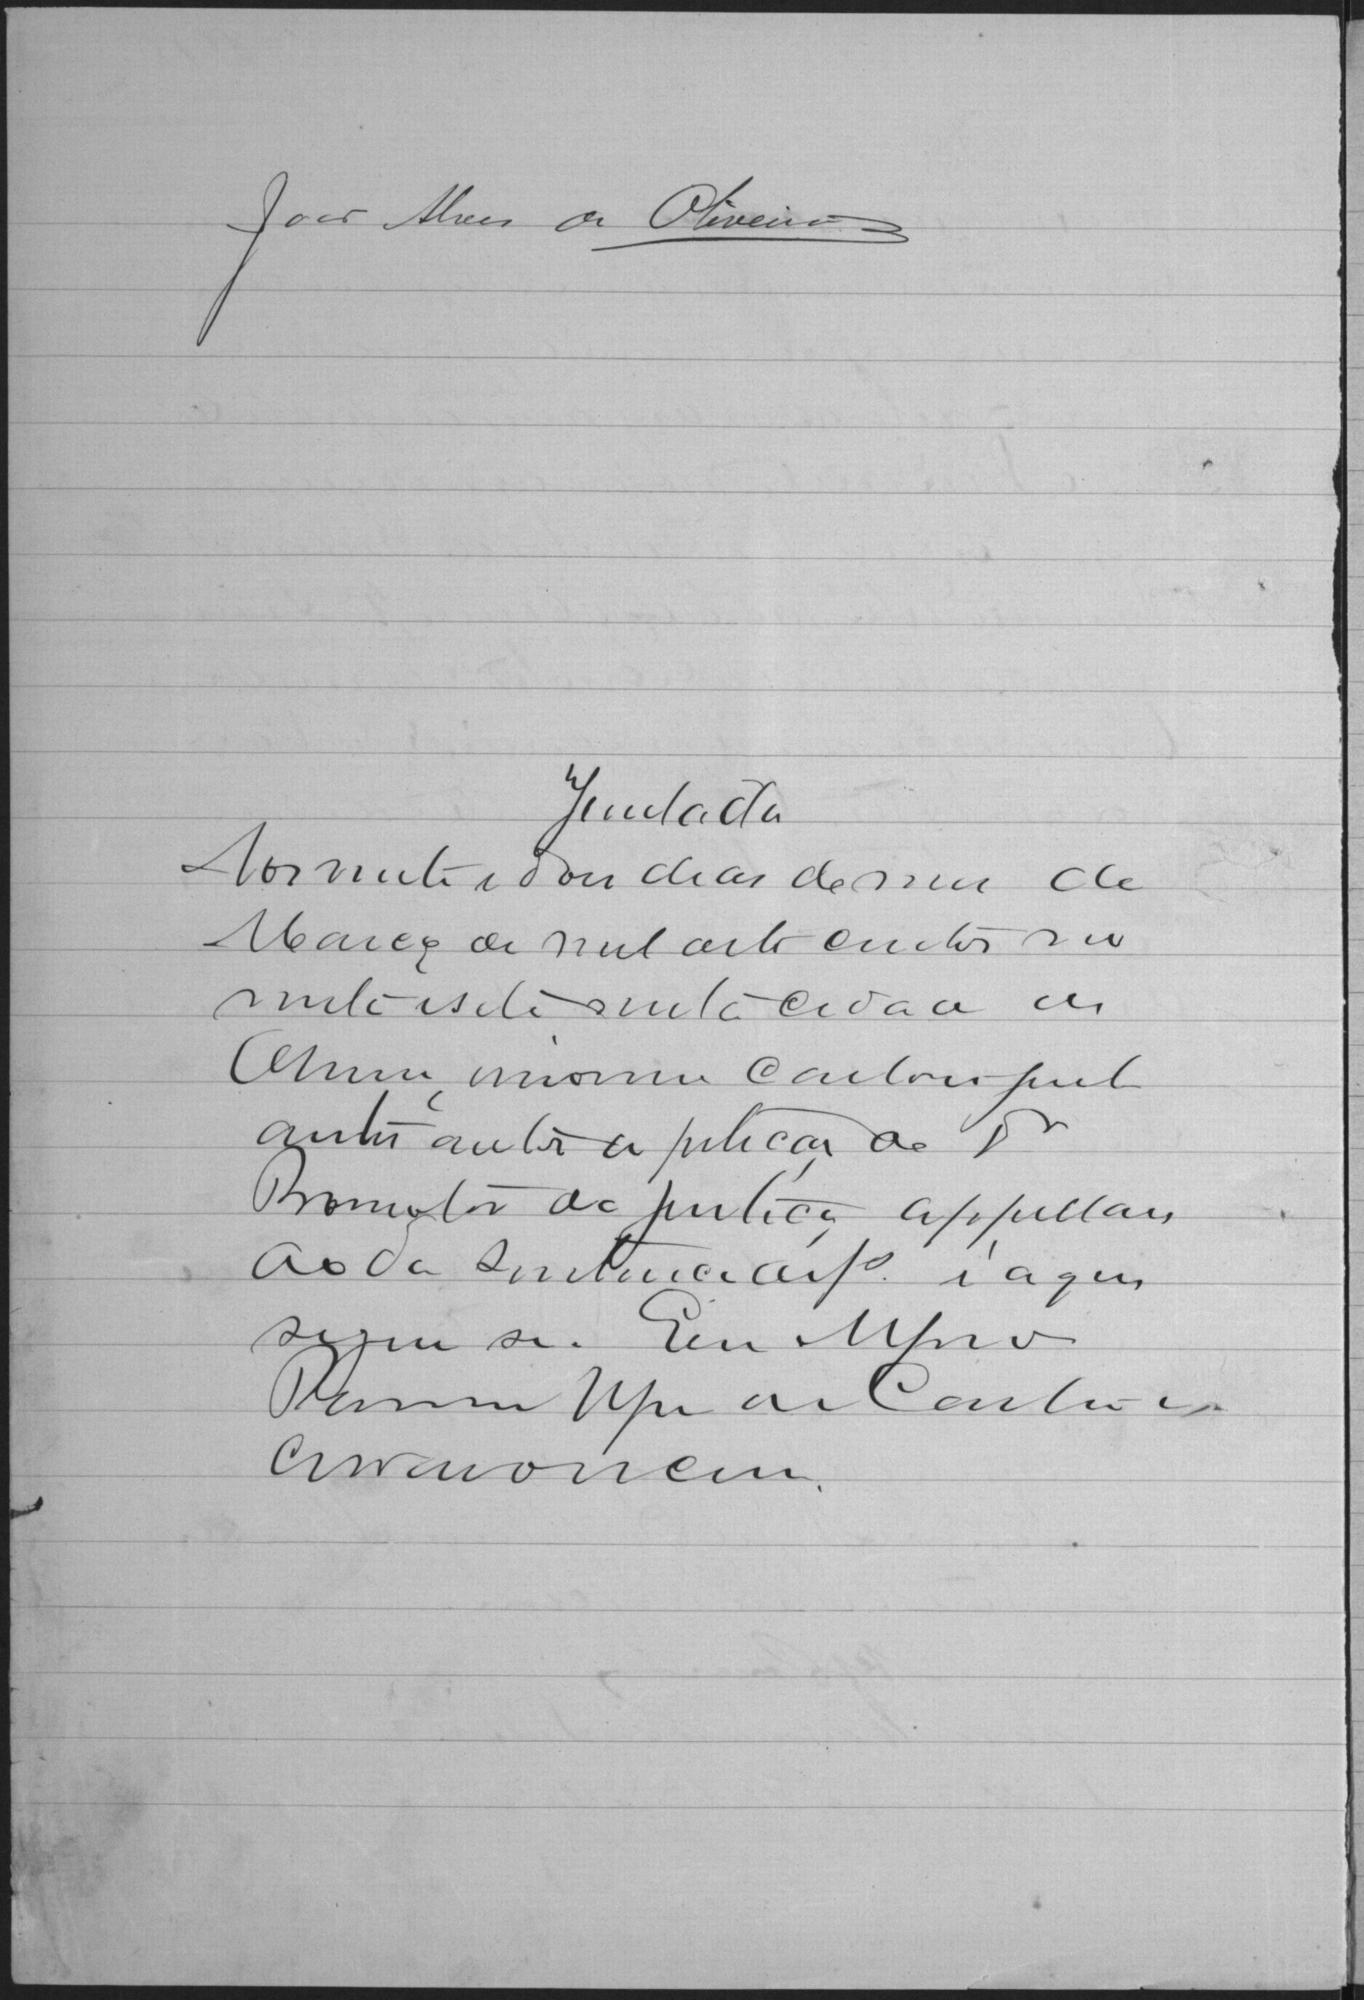 João Alves de Oliveira
Juntada
Aos vinte e dous dias do mes de
Março de mil oito centos no
venta e sete nesta cidade de
em meo Cartorio junt
a estes autos a petição do Dr
Promotor da justiça appellan
do da sentença de fs. é a que
segue se. Eu
de Castro e
escrevi.